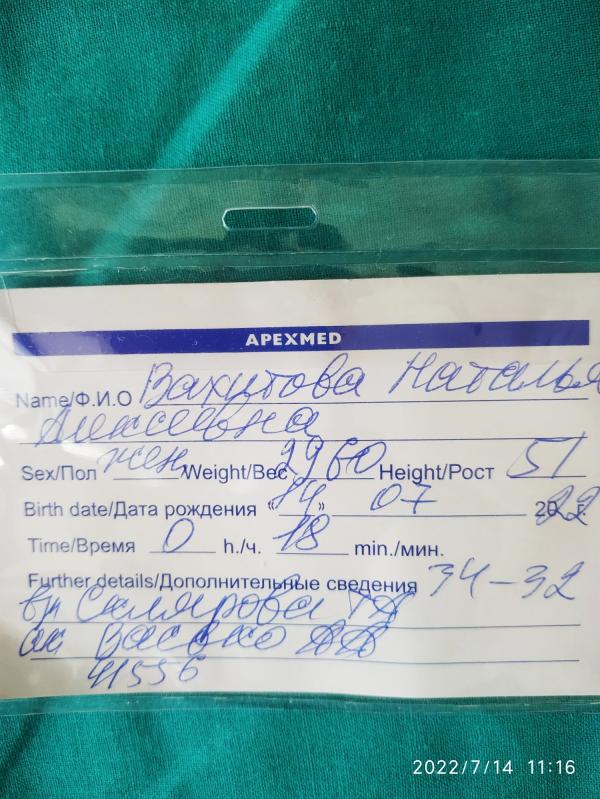 APEXMED
Name/Ф.И.О Вахитова Наталья
Алексеевна
Sex/Пол жен Weight/Вес 2960 Height/Рост 51
Birth date/Дата рождения «14» 07 2022 г.
Time/Время 0 h./ч. 18 min./мин.
Further details/Дополнительные сведения 34-32
вр Салярова
ак Васько
41556
2022/7/14 11:16